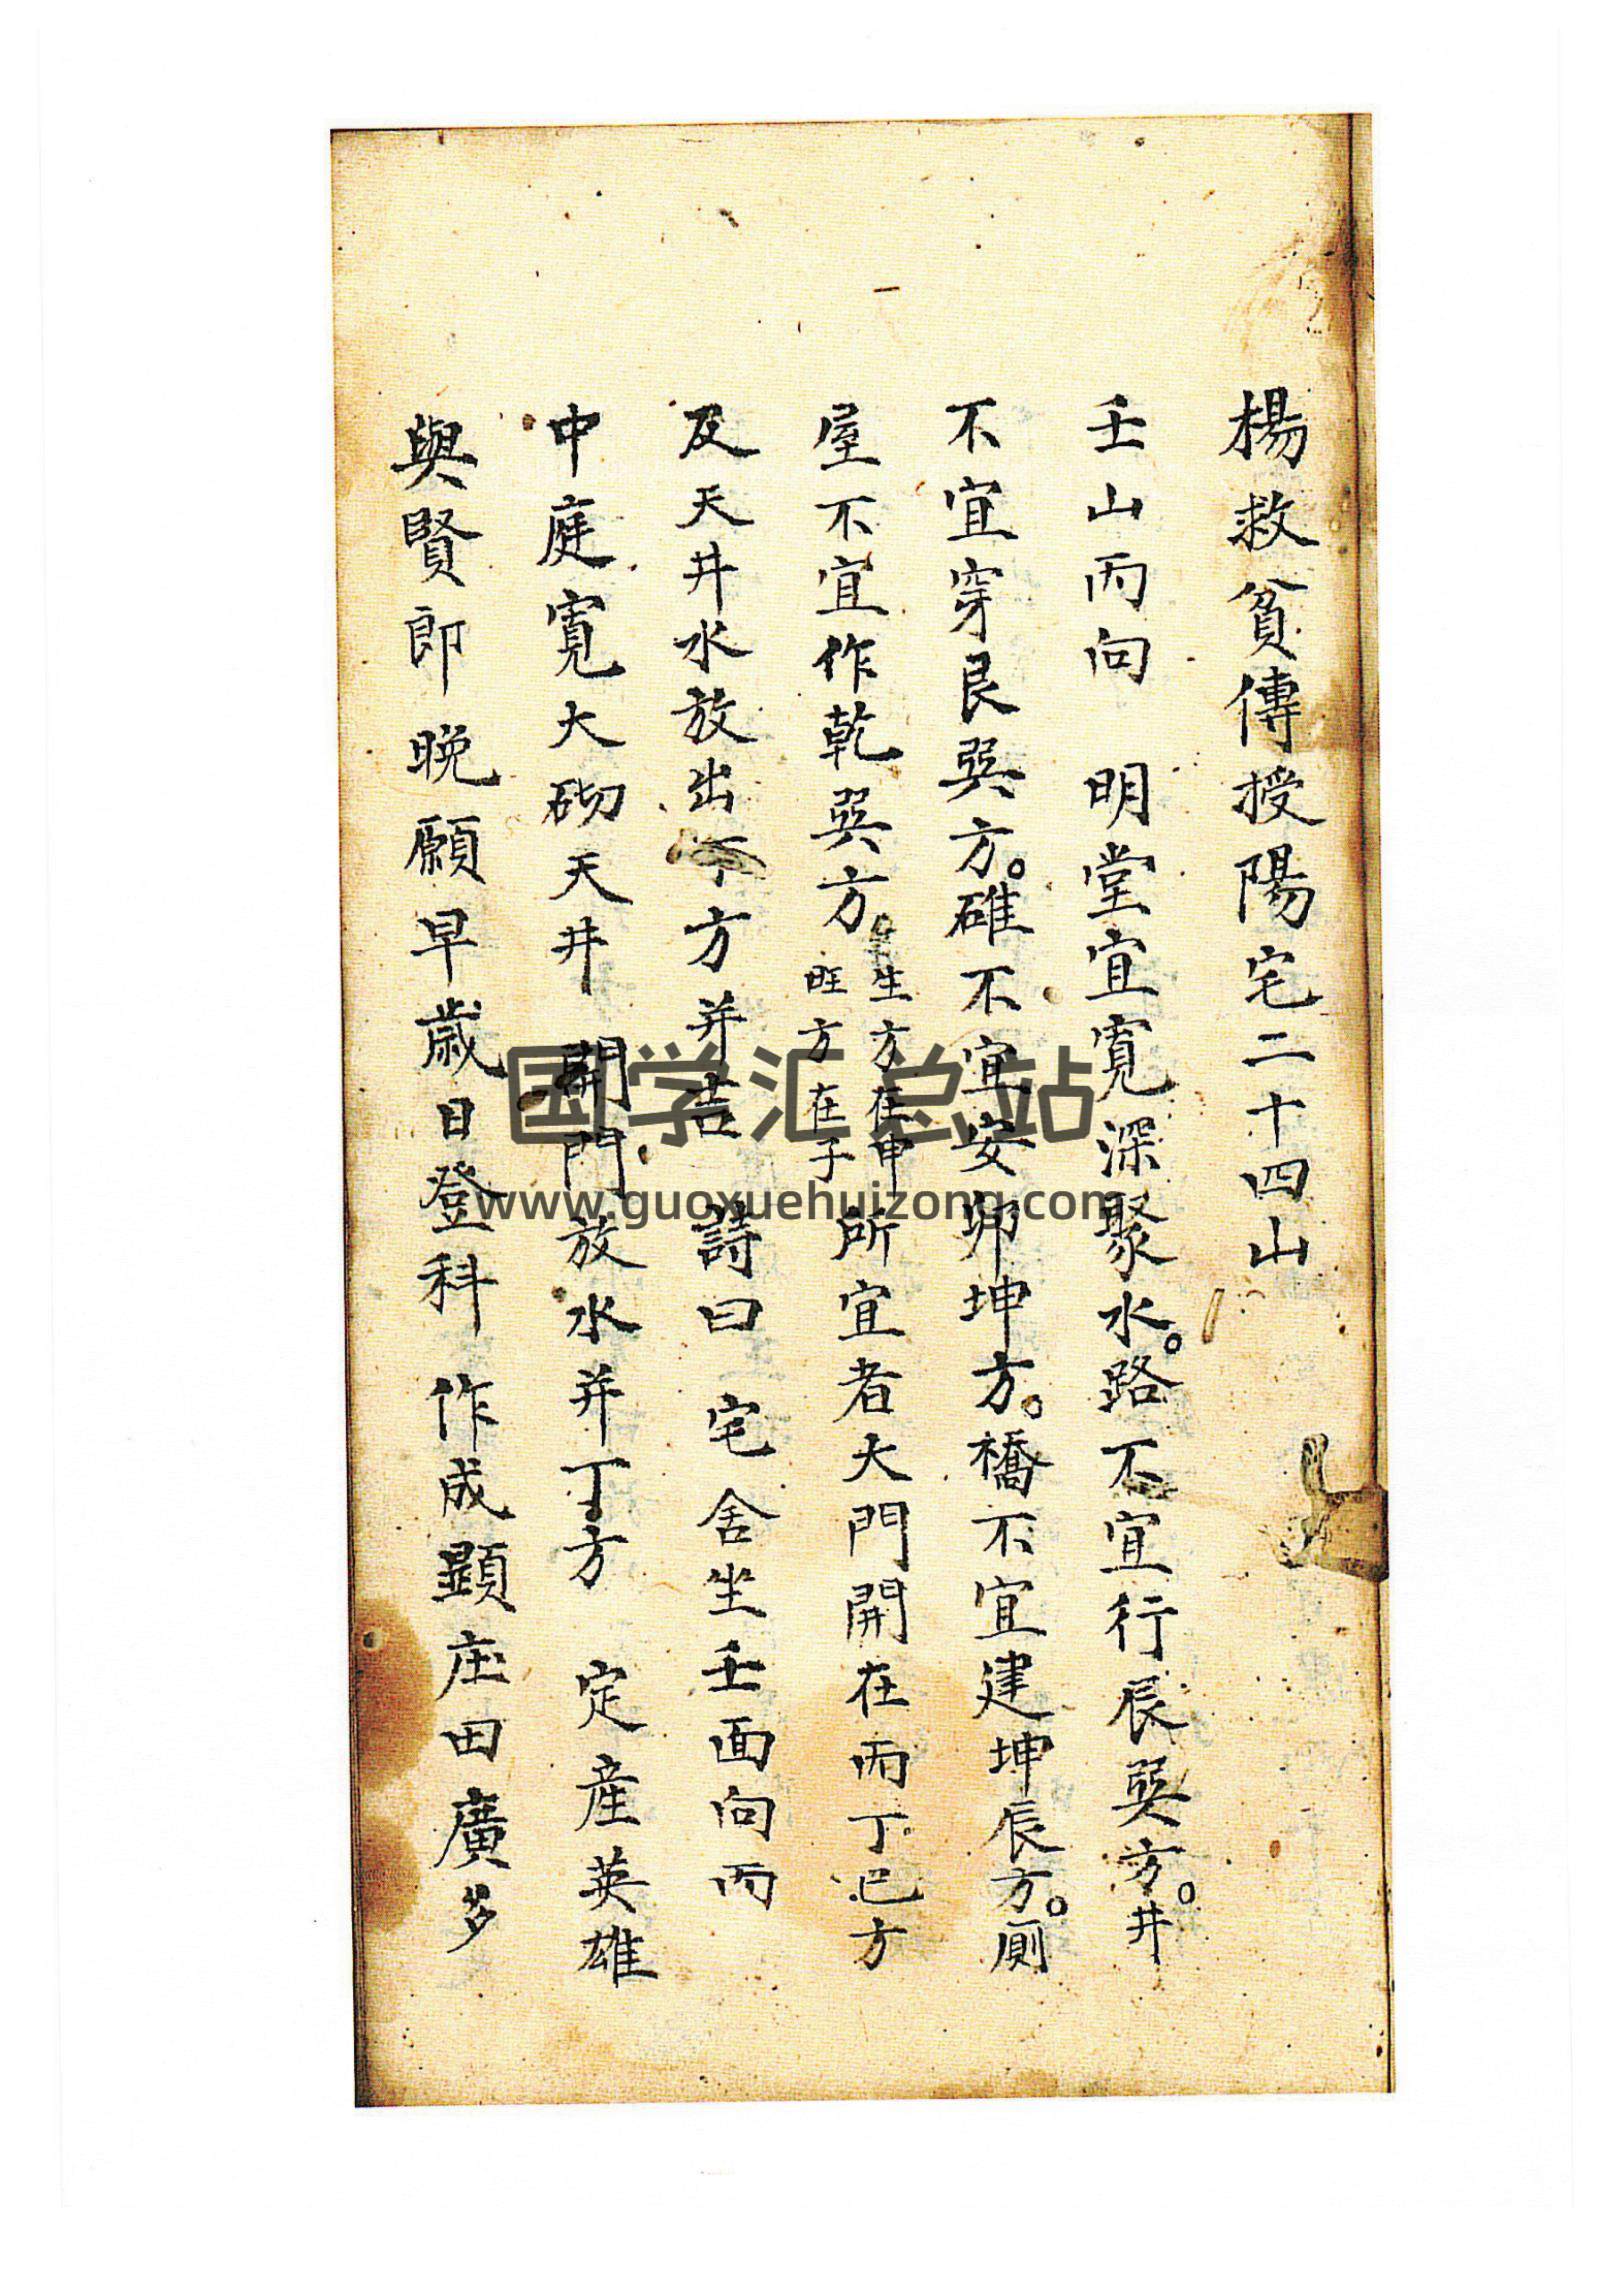 楊救貧傳授陽宅二十四山
壬山丙向 明堂宜寬深聚水。路不宜行辰巽方。井
不宜穿艮巽方。碓不宜安卯坤方。橋不宜建坤辰方。厠
屋不宜作乾巽方 生方在申 旺方在子 所宜者大門開在丙丁巳方
及天井水放出丁方并吉 詩曰 宅舍坐壬面向丙
中庭寬大砌天井 開門放水并丁方 定產英雄
與賢郎 晚願早歲日登科 作成顯庄田廣多
国学汇总站
www.guoxuehuizong.com